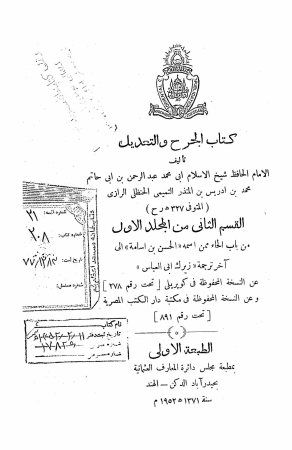 كتاب الجرح والتعديل
تأليف
الامام الحافظ شيخ الاسلام ابى محمد عبد الرحمن بن ابى حاتم
محمد بن ادريس بن المنذر التميمى الحنظلى الرازى
(المتوفى ٣٢٧ ھ رح)
القسم الثانى من المجلد الاول
من باب الحاء ممن اسمه «الحسن بن اسامة» الى
آخر ترجمة «زبرك ابى العباس»
عن النسخة المحفوظة فى كوپريلى [تحت رقم ٢٧٨]
و عن النسخة المحفوظة فى مكتبة دار الكتب المصرية
[تحت رقم ٨٩١]
الطبعة الاولى
بمطبعة مجلس دائرة المعارف العثمانية
بحيدرآباد الدكن - الهند
سنة ١٣٧١ ھ ١٩٥٢ م
٢١
٢٠٨
نام كتاب